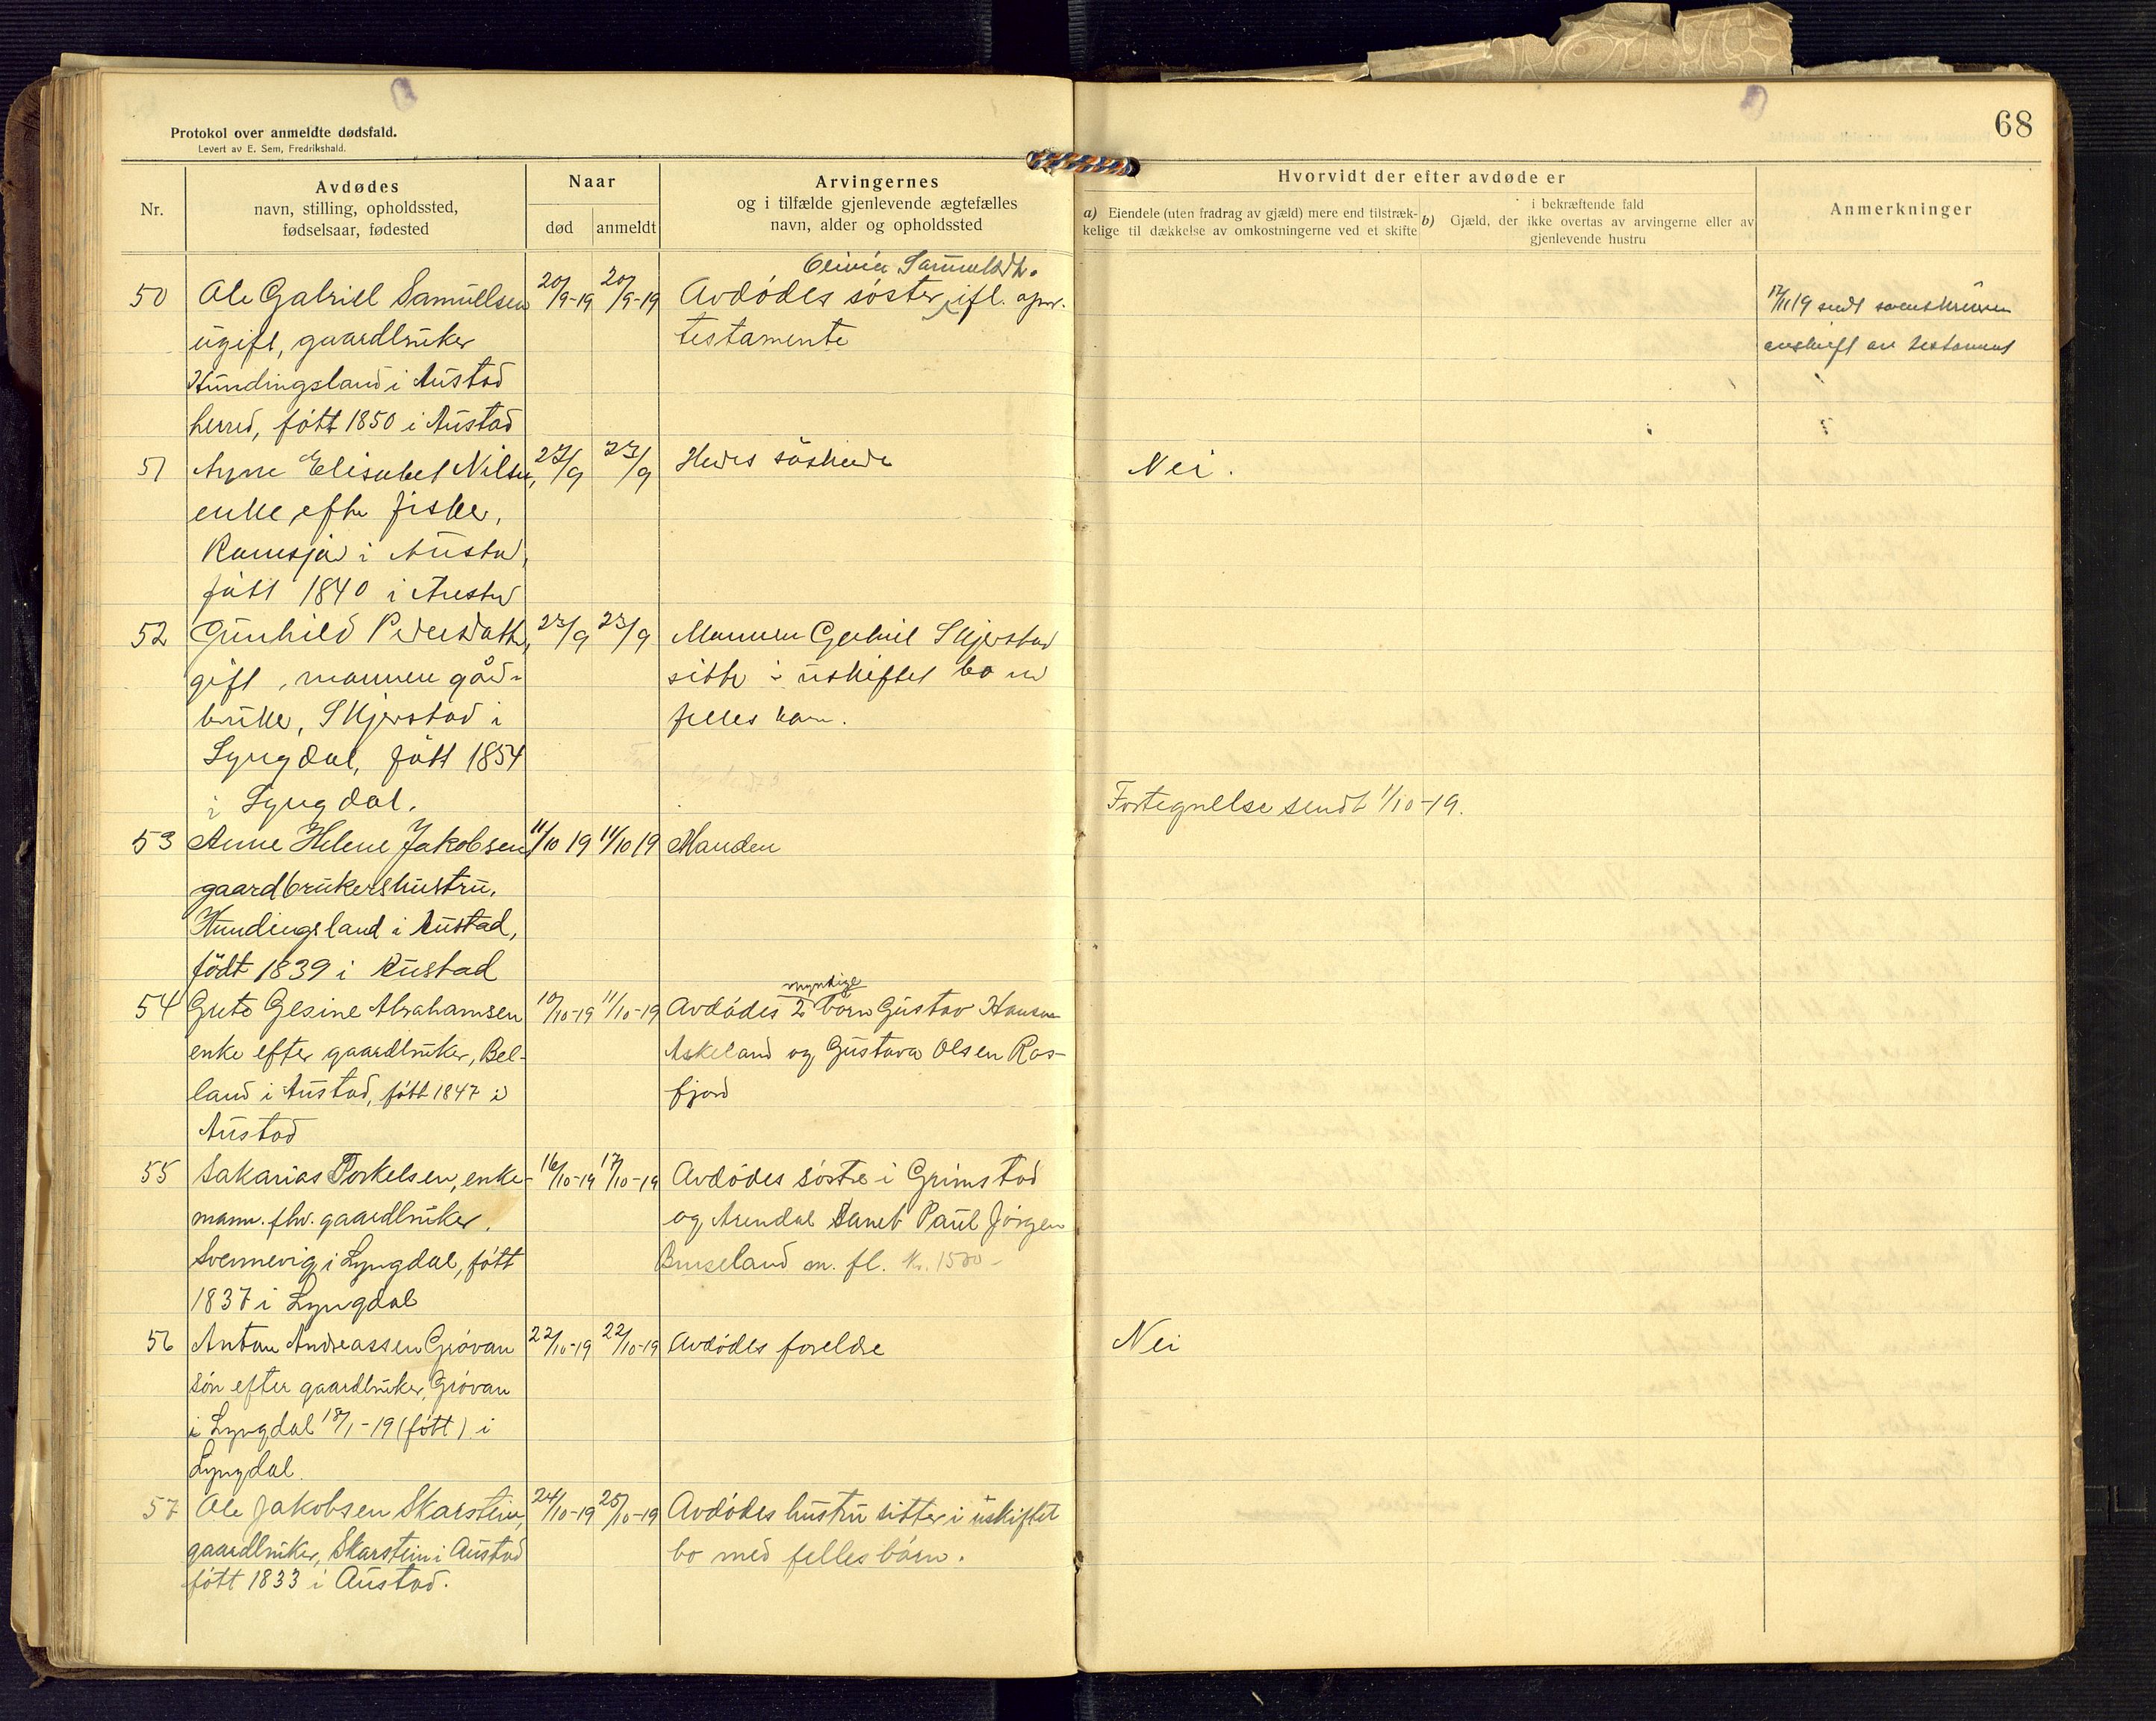 68
Protokol over anmeldte dødsfald.
Levert av E. Sem, Fredrikshald.
Nr.
Avdødes
navn, stilling, opholdssted,
fødselsaar, fødested
Naar
død
anmeldt
Arvingernes
og i tilfælde gjenlevende ægtefælles
navn, alder og opholdssted
Hvorvidt der efter avdøde er
a) Eiendele (uten fradrag av gjæld) mere end tilstræk-
kelige til dækkelse av omkostningerne ved et skifte
i bekræftende fald
b) Gjæld, der ikke overtas av arvingerne eller av
gjenlevende hustru
Anmerkninger
50
Ole Gabriel Samuelsen
ugift, gaardbruker
Hundingsland i Austad
herred, født 1850 i Austad
20/9-19
20/9-19
Olivia Samuelsdtr.
Avdødes søster, ifl.
testamente
17/11 19 sendt
avskrift av testament
51
Anne Elisabet Nilsen,
enke efter fisker,
i Austad,
født 1840 i Austad
27/9
Hendes søskende
Nei.
52
Gunhild Pedersdatter,
gift, mannen gård-
bruker, Skjerstad i
Lyngdal, født 1854
i Lyngdal.
23/9
23/9
Mannen Gabriel Skjerstad
sitter i uskiftet bo m
felles barn.
Fortegnelse sendt 1/10-19.
53
Anne Helene Jakobsen
gaardbrukershustru,
Hundingsland i Austad,
født 1839 i Austad
11/10 19
11/10 19
Manden
54
Grete Gesine Abrahamsen
enke efter gaardbruker, Bel-
land i Austad, født 1847 i
Austad
10/10-19
11/10-19
myndige
Avdødes 2 børn Gustav Hansen
Askeland og Gustava Olsen Ros-
fjord
55
Sakarias Torkelsen, enke-
mann. fhv. gaardbruker.
Svennevig i Lyngdal, født
1837 i Lyngdal
16/10-19
17/10-19
Avdødes søstre i Grimstad
og Arendal samt Paul Jørgen
Buseland m. fl. kr. 1500-
56
Anton Andreassen Grøvan
søn efter gaardbruker, Grøvan
i Lyngdal 18/1-19 (født) i
Lyngdal.
22/10-19
22/10-19
Avdødes foreldre
Nei
57
Ole Jakobsen Skarstein,
gaardbruker, Skarstein i Austad
født 1833 i Austad.
24/10-19
25/10-19
Avdødes hustru sitter i uskiftet
bo med felles børn.